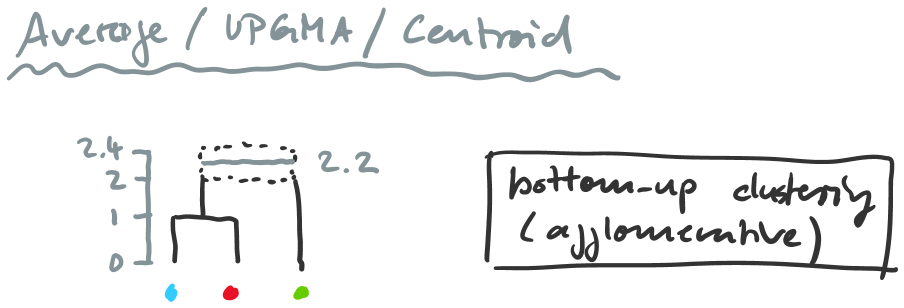 Average / UPGMA / Centroid
2.4
2.2
2
1
0
bottom-up clustering
(agglomerative)